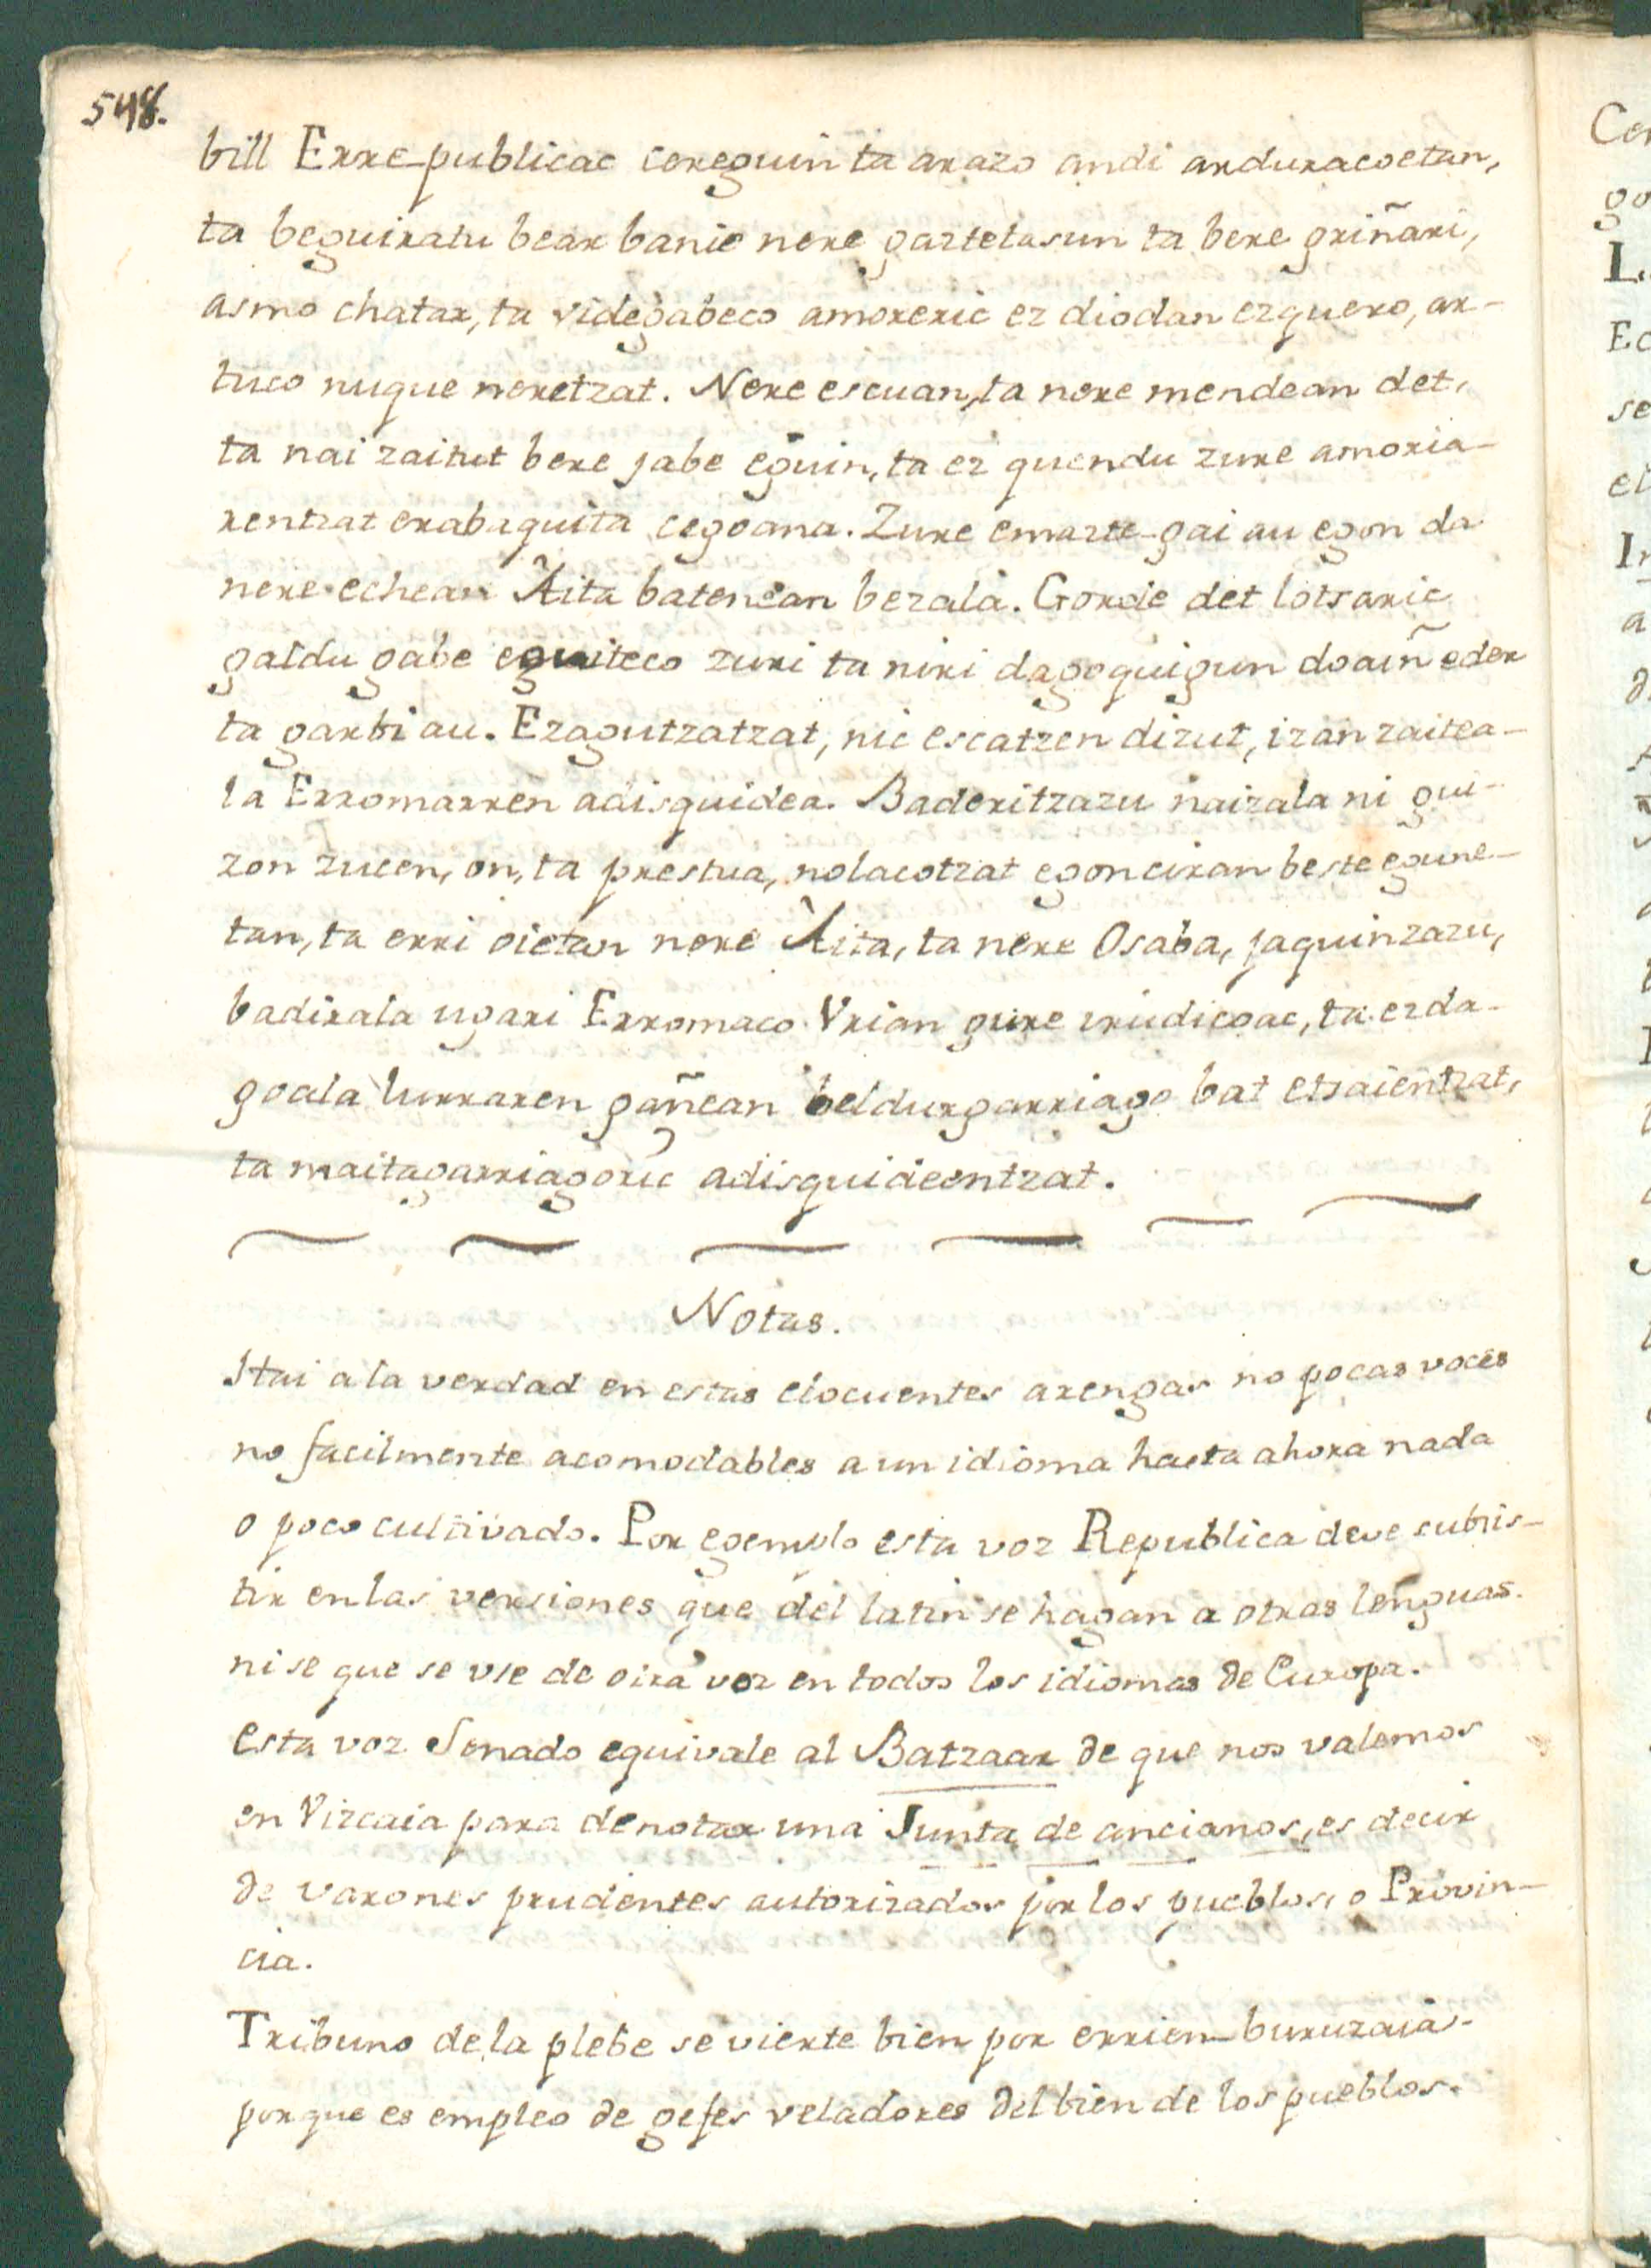 548.
bill Erre-publicac cereguin ta arazo andi arduracoetan,
ta beguiratu bear banie nere gaztetasun ta bere griñari,
asmo chatar, ta videgabeco amoreric ez diodan ezquero, ar-
tuco nuque neretzat. Nere escuan, ta nere mendean det,
ta nai zaitut bere jabe eguin, ta ez quendu zure amoria-
rentzat erabaquita cegoana. Zure emazte-gai au egon da
nere echean Aita batenean bezala. Gorde det lotsaric
galdu gabe eguiteco zuri ta niri dagoquigun doaiñ eder
ta garbi au. Ezagutzatzat, nic escatzen dizut, izan zaitea-
la Erromarren adisquidea. Baderitzazu naizala ni gui-
zon zucen, on, ta prestua, nolacotzat egon ciran beste egune-
tan, ta erri oietan nere Aita, ta nere Osaba, jaquinzazu,
badirala ugari Erromaco Vrian gure irudicoac, ta ezda-
goala lurraren gañean beldurgarriago bat etsaientzat,
ta maitagarriagoric adisquideentzat.
Notas.
Hai a la verdad en estas elocuentes arengas no pocas voces
no facilmente acomodables a un idioma hasta ahora nada
o poco cultivado. Por egemplo esta voz Republica deve subsis-
tir en las versiones que del latin se hagan a otras lenguas.
ni se que se vse de otra voz en todos los idiomas de Europa.
Esta voz Senado equivale al Batzaar de que nos valemos
en Vizcaia para denotar una Junta de ancianos, es decir
de varones prudentes autorizados por los pueblos, o Provin-
cia.
Tribuno de la plebe se vierte bien por errien-buruzaia.
porque es empleo de gefes veladores del bien de los pueblos.